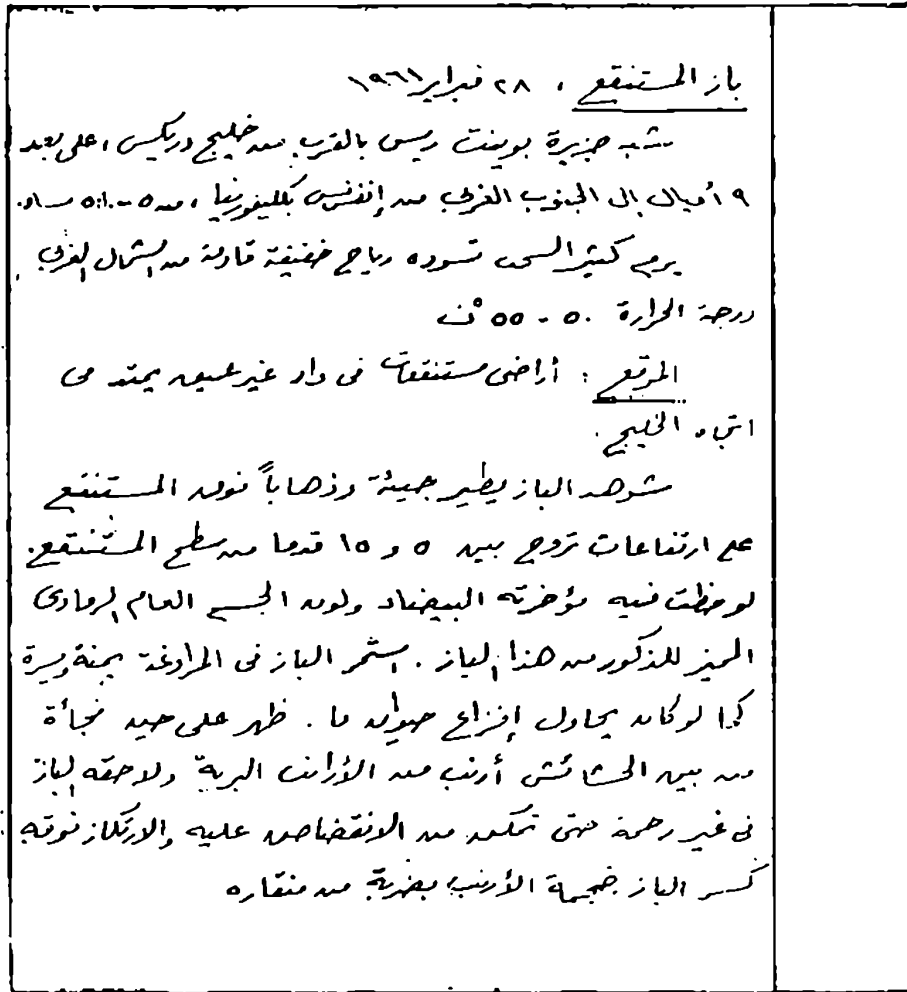 باز المستنقع ، ٢٨ فبراير ١٩٦١
شبه جزيرة بوينت ريس بالقرب من خليج دريكس ، على بعد
٩ أميال إلى الجنوب الغربي من إنفرنس بكليفورنيا ، من ٥ - ٥:١٠ مساء.
يوم كثير السحب تسوده رياح خفيفة قادمة من الشمال الغربي
درجة الحرارة ٥٠ - ٥٥ °ف
الموقع : أراضى مستنقعات فى واد غير عميق يمتد فى
اتجاه الخليج .
شوهد الباز يطير جيئة وذهاباً فوق المستنقع
على ارتفاعات تروح بين ٥ و ١٥ قدما من سطح المستنقع.
لوحظت فيه مؤخرته البيضاء ولون الجسم العام الرمادى
المميز للذكور من هذا الباز . استمر الباز فى المراوغة يمنة ويسرة
كما لو كان يحاول إفزاع حيوان ما . ظهر على حين فجأة
من بين الحشائش أرنب من الأرانب البرية ولاحقه الباز
فى غير رحمة حتى تمكن من الانقضاض عليه والارتكاز فوقه
كسر الباز جمجمة الأرنب بضربة من منقاره